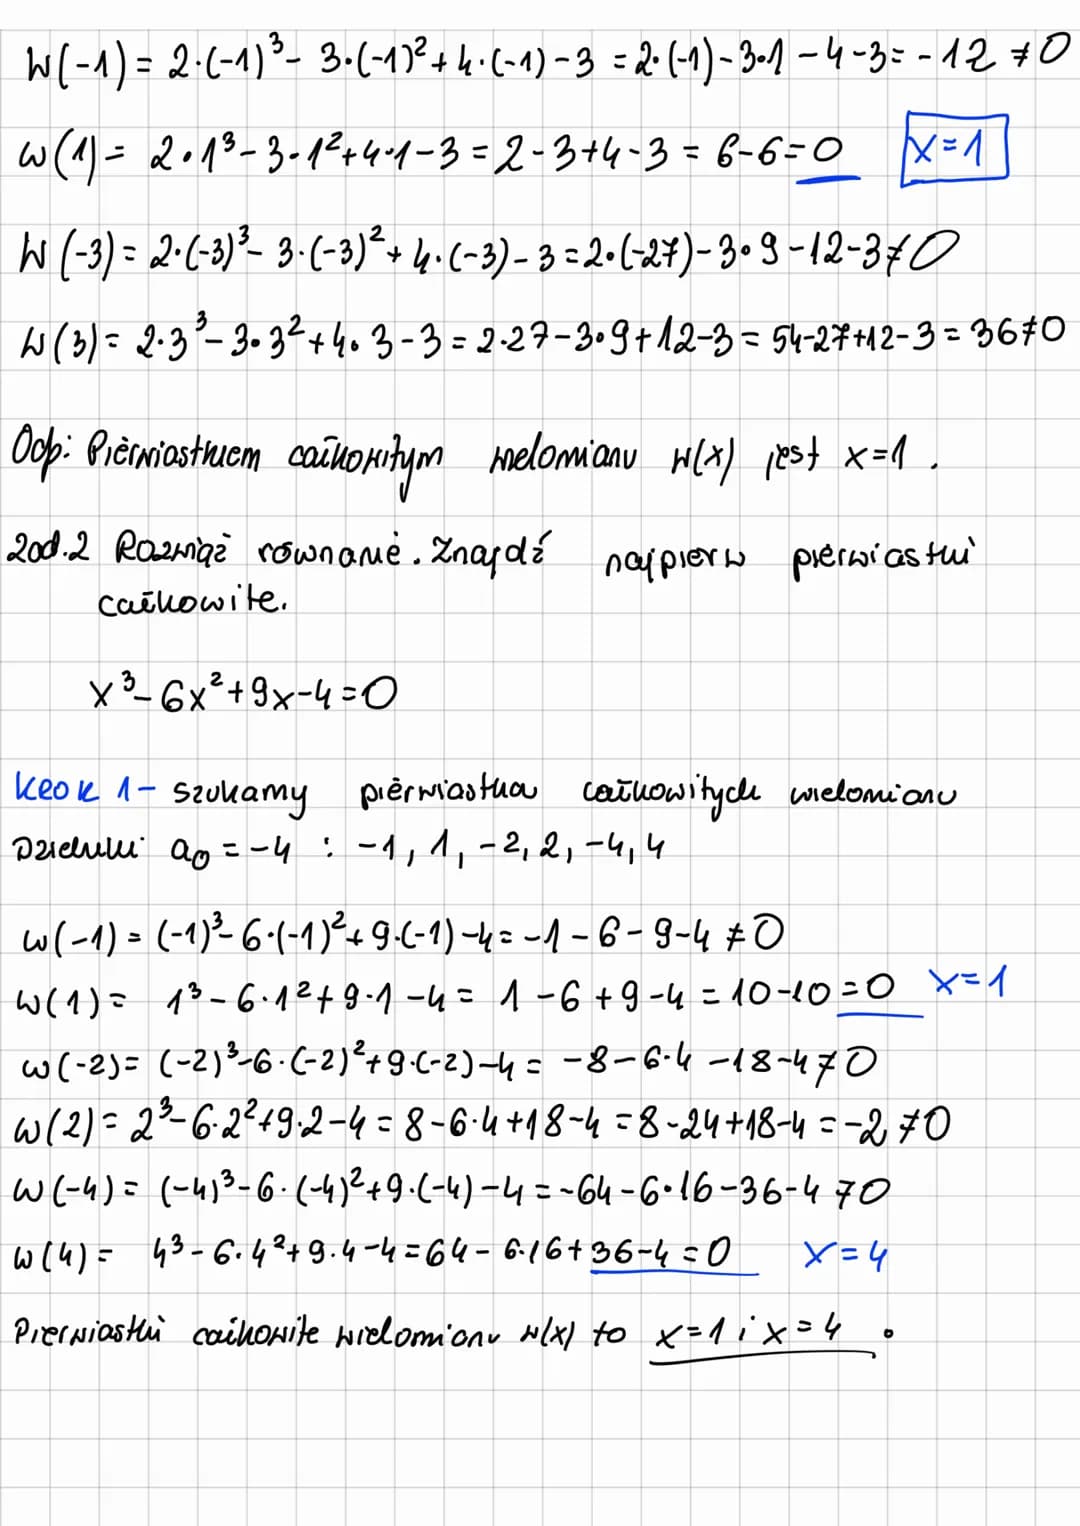 W(-1) = 2·(-1)³ - 3·(-1)² + 4·(-1) - 3 = 2·(-1) - 3·1 - 4 - 3 = -12 ≠ 0
W(1) = 2·1³ - 3·1² + 4·1 - 3 = 2 - 3 + 4 - 3 = 6 - 6 = 0 x=1
W(-3) = 2·(-3)³ - 3·(-3)² + 4·(-3) - 3 = 2·(-27) - 3·9 - 12 - 3 ≠ 0
W(3) = 2·3³ - 3·3² + 4·3 - 3 = 2·27 - 3·9 + 12 - 3 = 54 - 27 + 12 - 3 = 36 ≠ 0
Odp: Pierwiastkiem całkowitym wielomianu W(x) jest x=1.
Zad.2 Rozwiąż równanie. Znajdź najpierw pierwiastki
całkowite.
x³ - 6x² + 9x - 4 = 0
Krok 1 - szukamy pierwiastków całkowitych wielomianu
Dzielniki a₀ = -4 : -1, 1, -2, 2, -4, 4
W(-1) = (-1)³ - 6·(-1)² + 9·(-1) - 4 = -1 - 6 - 9 - 4 ≠ 0
W(1) = 1³ - 6·1² + 9·1 - 4 = 1 - 6 + 9 - 4 = 10 - 10 = 0 x=1
W(-2) = (-2)³ - 6·(-2)² + 9·(-2) - 4 = -8 - 6·4 - 18 - 4 ≠ 0
W(2) = 2³ - 6·2² + 9·2 - 4 = 8 - 6·4 + 18 - 4 = 8 - 24 + 18 - 4 = -2 ≠ 0
W(-4) = (-4)³ - 6·(-4)² + 9·(-4) - 4 = -64 - 6·16 - 36 - 4 ≠ 0
W(4) = 4³ - 6·4² + 9·4 - 4 = 64 - 6·16 + 36 - 4 = 0 x=4
Pierwiastki całkowite wielomianu W(x) to x=1 i x=4.